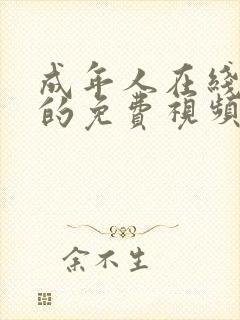 成年人在綫
的免費視頻
余不生